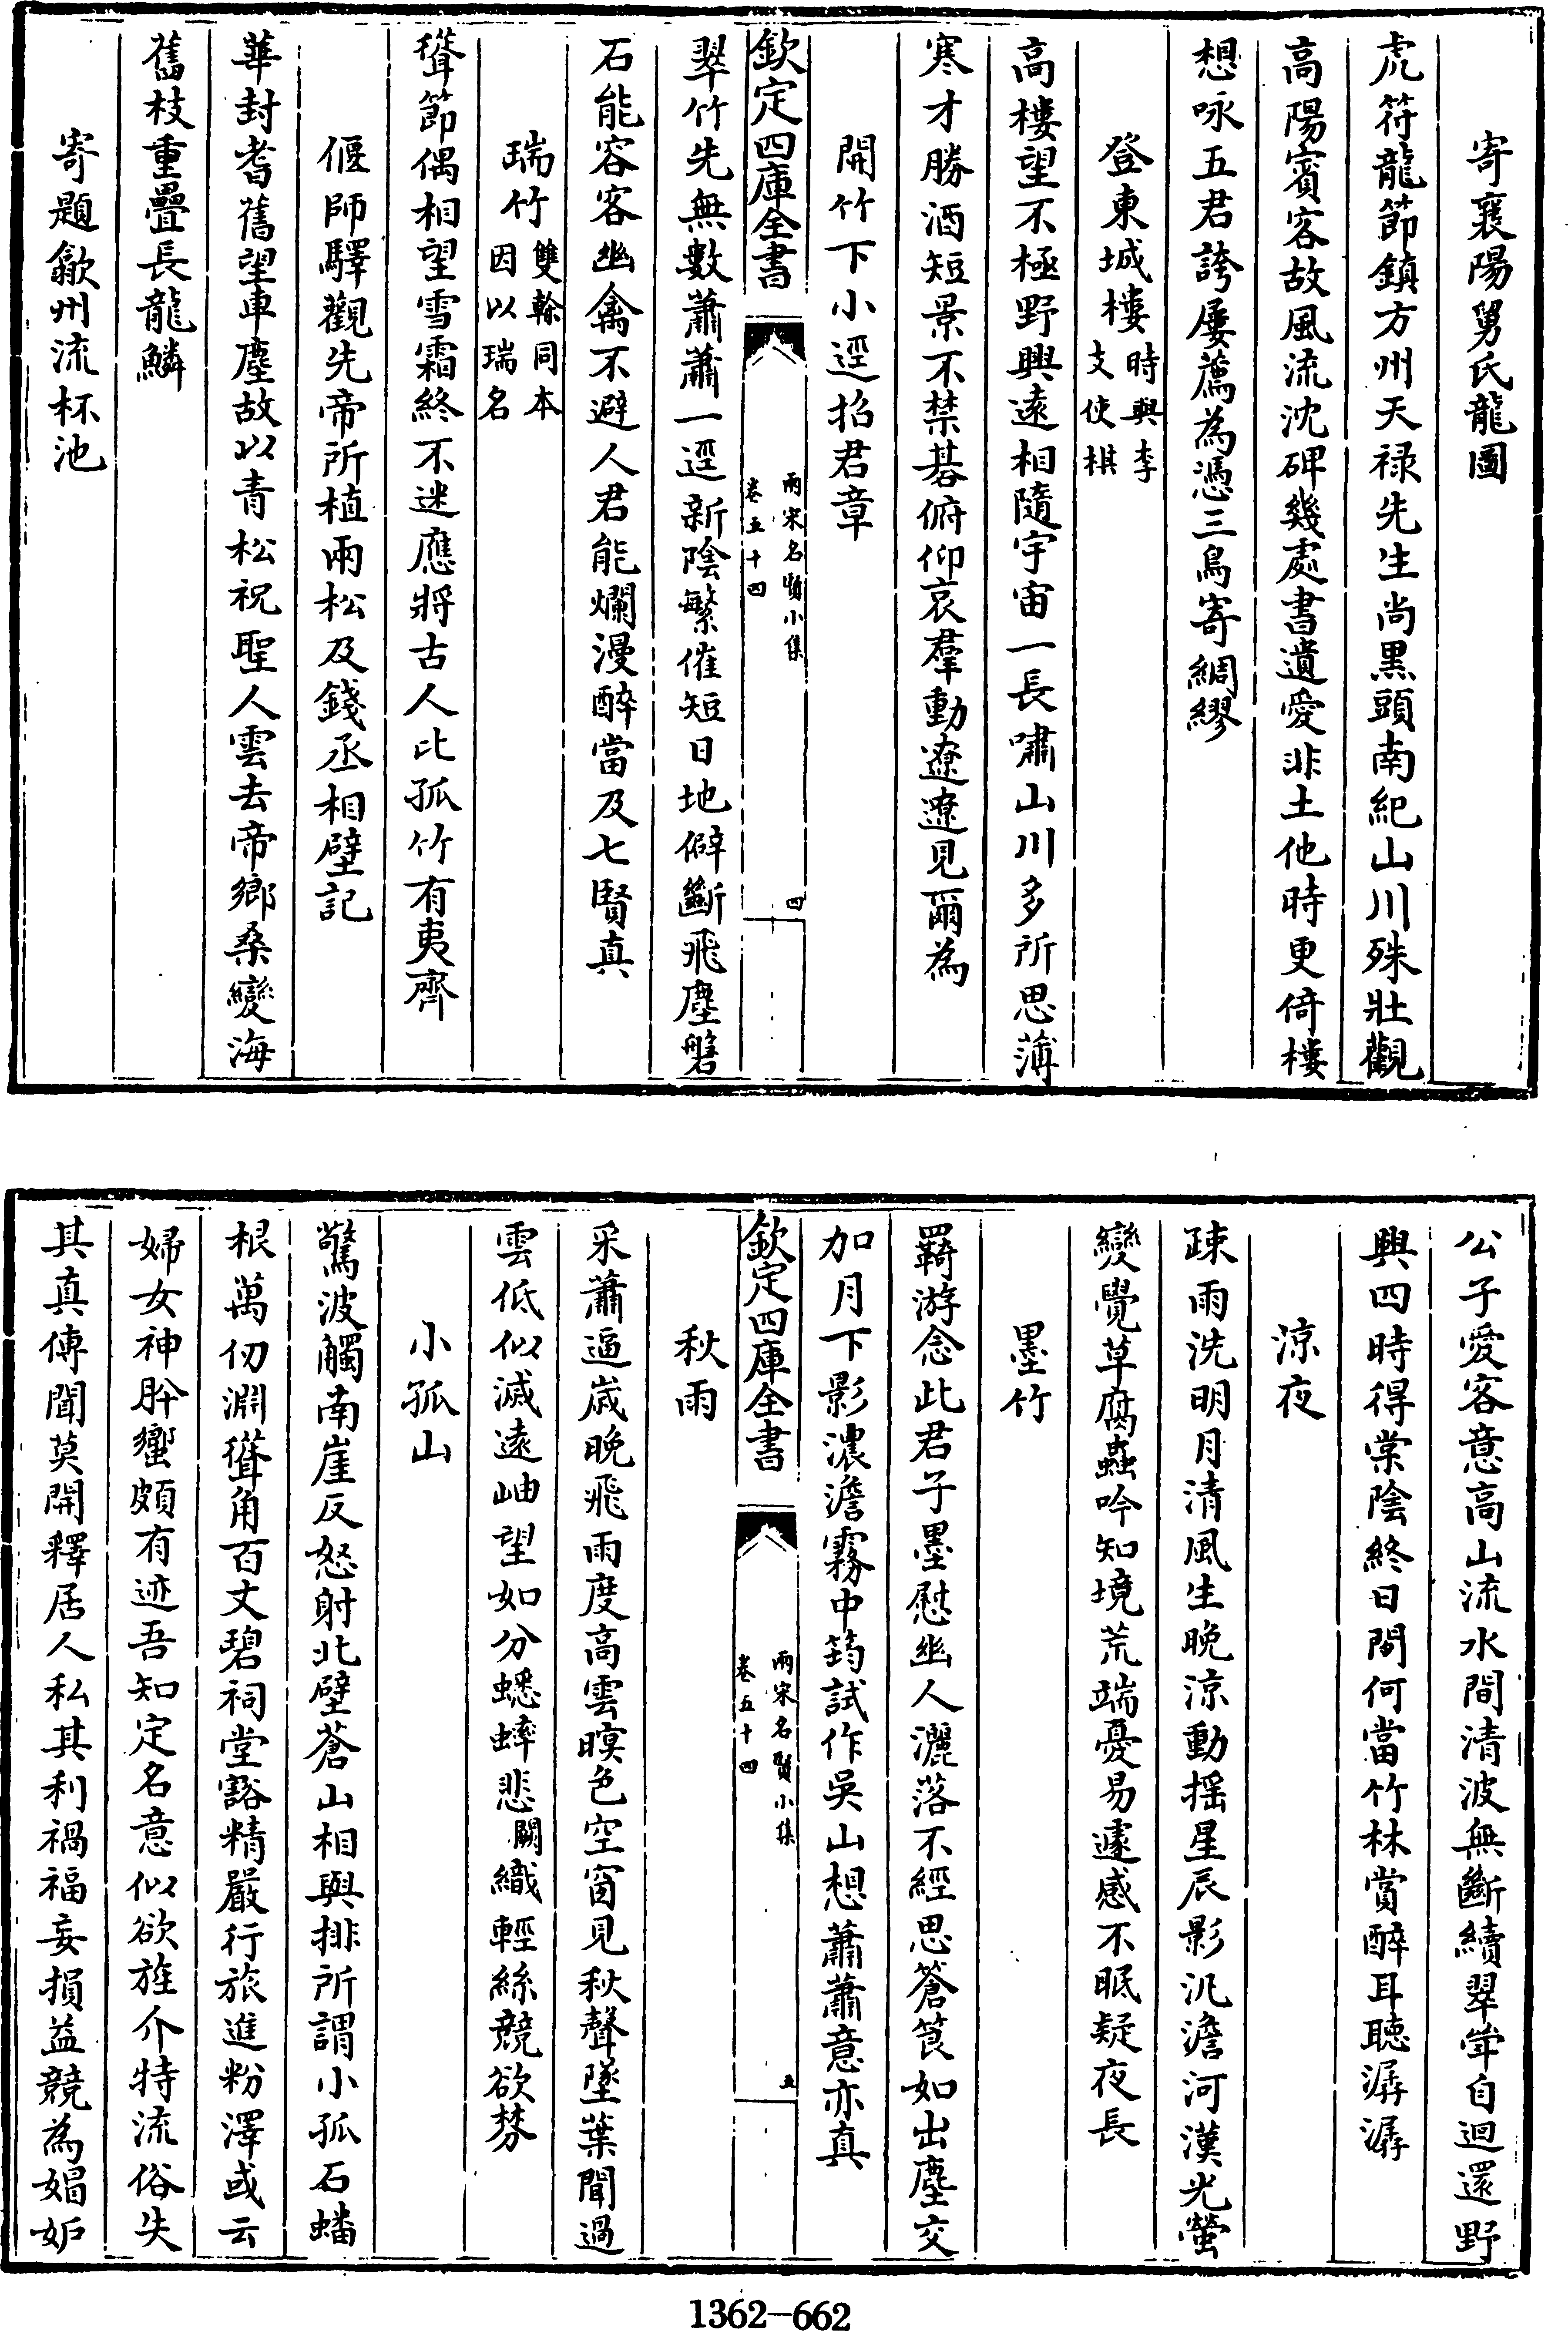 寄襄陽舅氏龍圖
虎符龍節鎮方州天禄先生尚黒頭南紀山川殊壯觀
高陽賓客故風流沈碑幾處書遺愛非土他時更倚樓
想咏五君誇屢薦為憑三鳥寄綢繆
登東城樓時與李支使棋
高樓望不極野興遠相隨宇宙一長嘯山川多所思薄
寒才勝酒短景不禁碁俯仰哀羣動遼遼見爾為
開竹下小逕招君章
欽定四庫全書
兩宋名賢小集
卷五十四
四
翠竹先無數蕭蕭一逕新陰繁催短日地僻斷飛塵磐
石能容客幽禽不避人君能爛漫醉當及七賢真
瑞竹雙榦同本因以瑞名
聳節偶相望雪霜終不迷應將古人比孤竹有夷齊
偃師驛觀先帝所植兩松及錢丞相壁記
華封耆舊望車塵故以青松祝聖人雲去帝鄉桑變海
舊枝重疊長龍鱗
寄題歙州流杯池
公子愛客意高山流水間清波無斷續翠崒自迴還野
興四時得棠陰終日閒何當竹林賞醉耳聴潺潺
涼夜
疎雨洗明月清風生晚涼動揺星辰影汎澹河漢光螢
變覺草腐蟲吟知境荒端憂易遽感不眠疑夜長
墨竹
羇游念此君子墨慰幽人灑落不經思蒼筤如出塵交
加月下影濃澹霧中筠試作吳山想蕭蕭意亦真
欽定四庫全書
兩宋名賢小集
卷五十四
五
秋雨
采蕭逼歳晚飛雨度高雲暝色空窗見秋聲墜葉聞過
雲低似滅遠岫望如分蟋蟀悲闕織輕絲競欲棼
小孤山
驚波觸南崖反怒射北壁蒼山相與排所謂小孤石蟠
根萬仞淵聳角百丈碧祠堂豁精嚴行旅進粉澤或云
婦女神肸蠁頗有迹吾知定名意似欲旌介特流俗失
其真傳聞莫開釋居人私其利禍福妄損益競為娼妒
1362-662